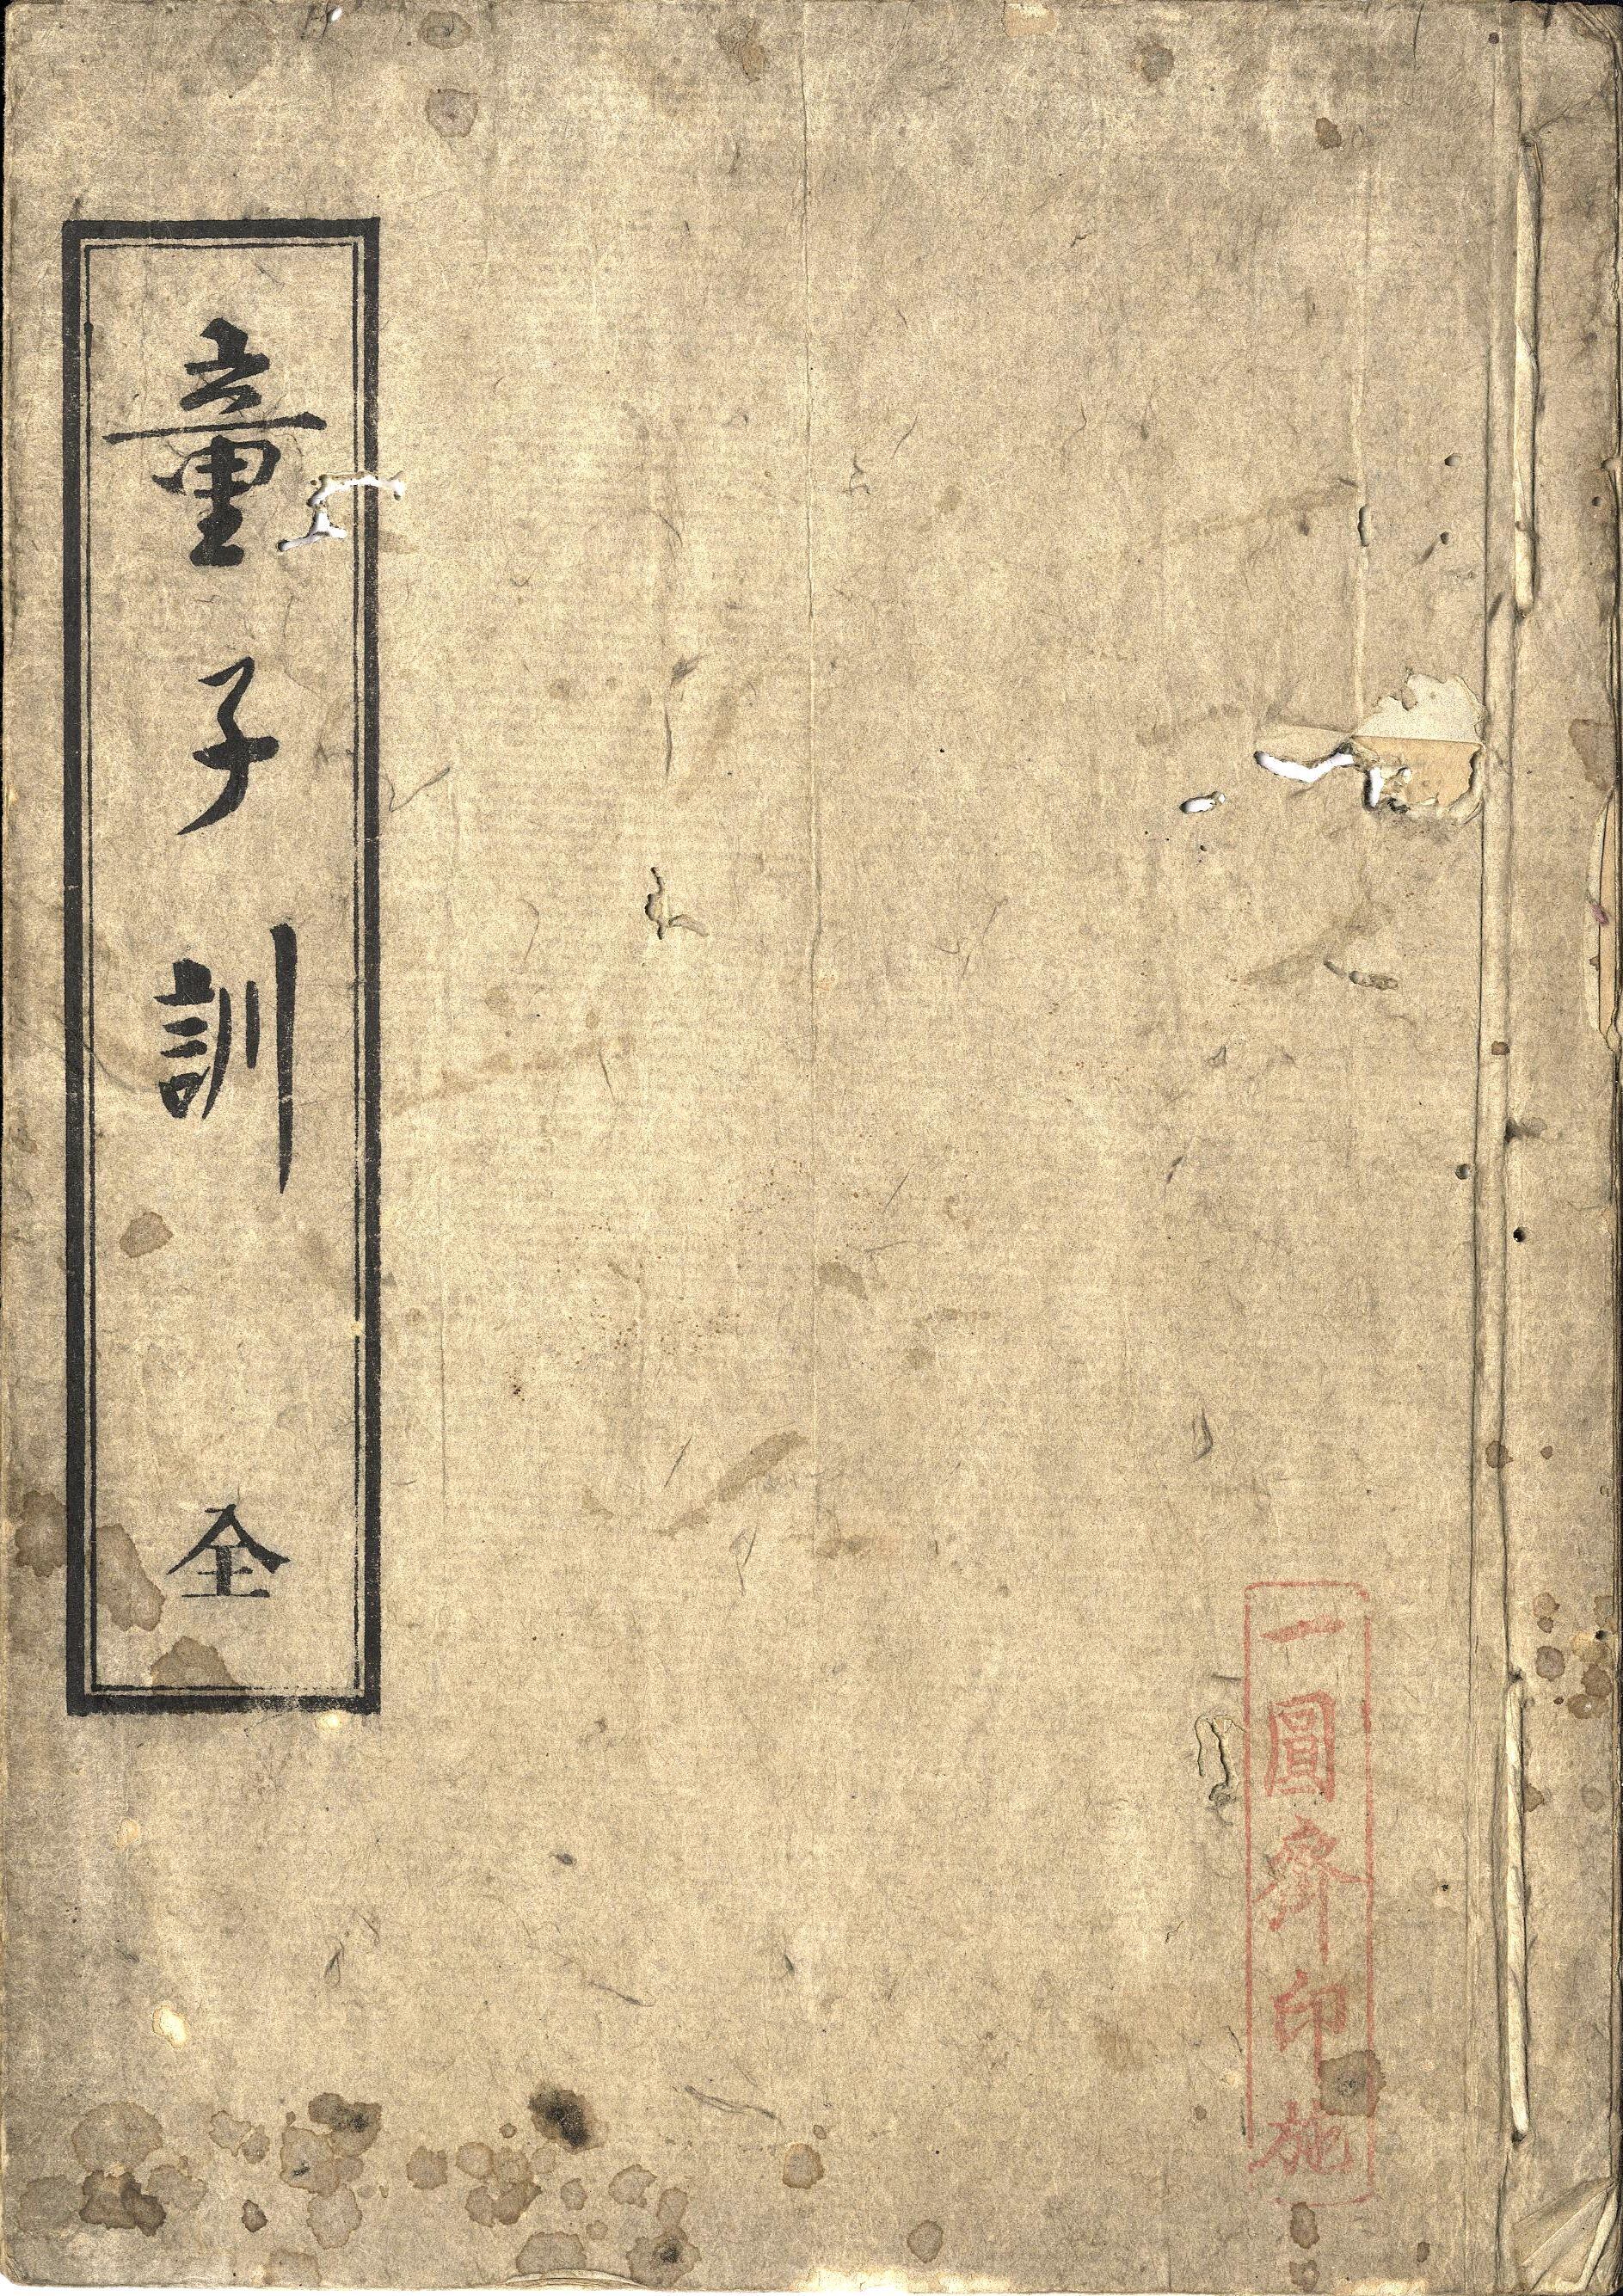 一圓齋印施
童子訓　全